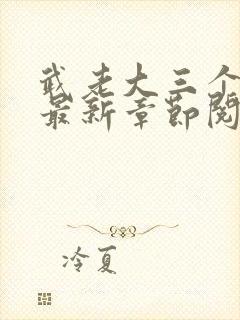 武老大三个
最新章节阅
冷夏